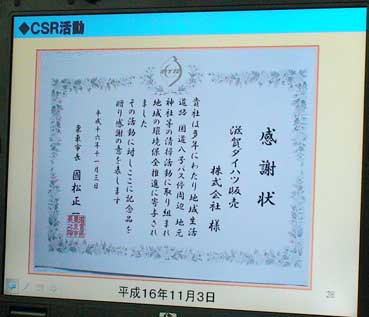 ◆CSR活動
感謝状
滋賀ダイハツ販売
株式会社 様
貴社は多年にわたり地域生活
道路・国道八号バス停周辺・地元
神社等の清掃活動に取り組まれ
地域の環境保全推進に寄与され
ました
その活動に対しここに記念品を
贈り感謝の意を表します
平成十六年十一月三日
栗東市長 國松正一
平成16年11月3日
28